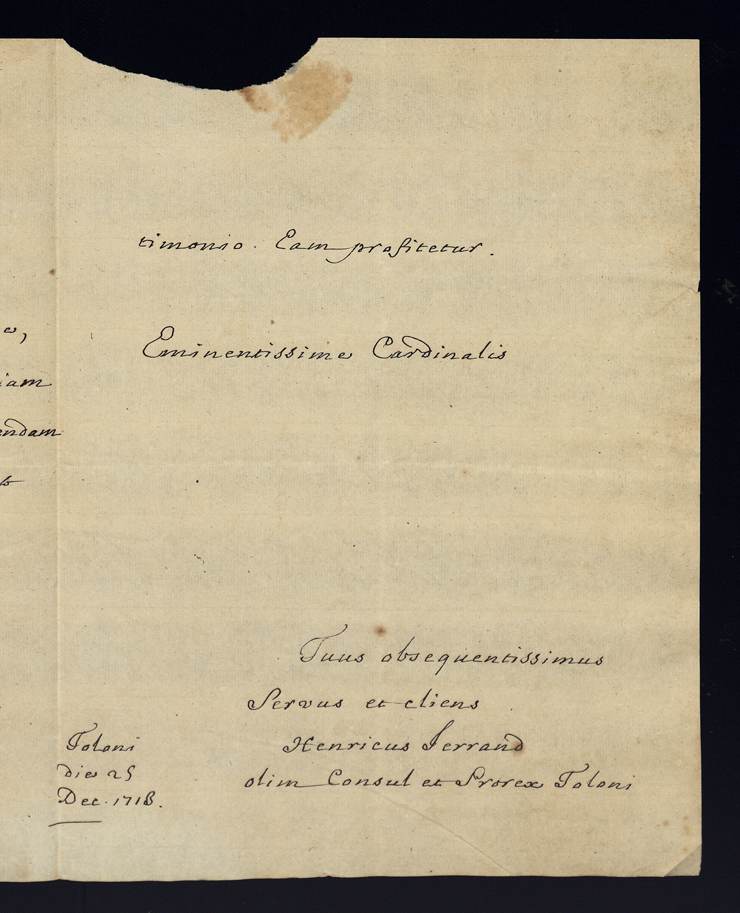 timonio. Eam profitetur.
Eminentissime Cardinalis
iam
endam
Tuus obsequentissimus
Servus et cliens
Henricus Ferrand
olim Consul et Prorex Toloni
Toloni
die 25
Dec. 1718.